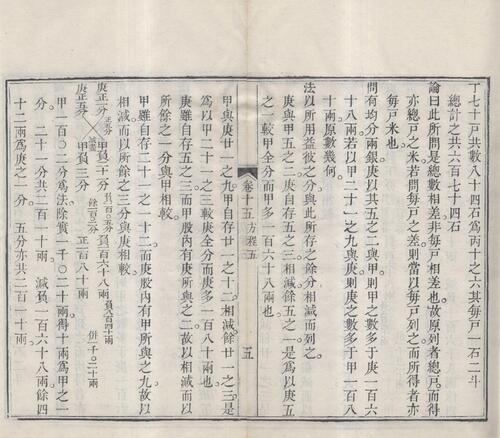 丁七十戸共數八十四石為丙十之六其每戸一石二斗
總計之共六百七十四石
論曰此所問是總數相差非每戸相差也故原列者總戸而得
亦總戸之米若問每戸之差則當以每戸列之而所得者亦
每戸米也
問有均分兩銀庚以其五之二與甲則甲之數多于庚一百六
十八兩若以甲二十一之九與庚則庚之數多于甲一百八
十兩原數幾何
法以所用益彼之分與此所存之餘分相減而列之
庚與甲五之二庚自存五之三相減餘五之一是為以庚五
之一較甲全分而甲多一百六十八兩也
卷十五 方程五 五
甲與庚廿一之九甲自存廿一之十二相減餘廿一之三是
為以甲二十一之三較庚全分而庚多一百八十兩也
庚雖自存五之三而甲股內有庚所與之二故以相減而以
所餘之一分與甲相較
甲雖自存二十一之一十二而庚股內有甲所與之九故以
相減而以所餘之三分與庚相較
庚正一分 負一百六十八兩 負八百四十兩
庚正五分 甲負三分 正一百八十兩 併一千〇二十兩
甲一百〇二分為法除實一千〇二十兩得十兩為甲之一
分 二十一分共二百一十兩 減負一百六十八兩餘四
十二兩為庚之一分 五分亦共二百一十兩